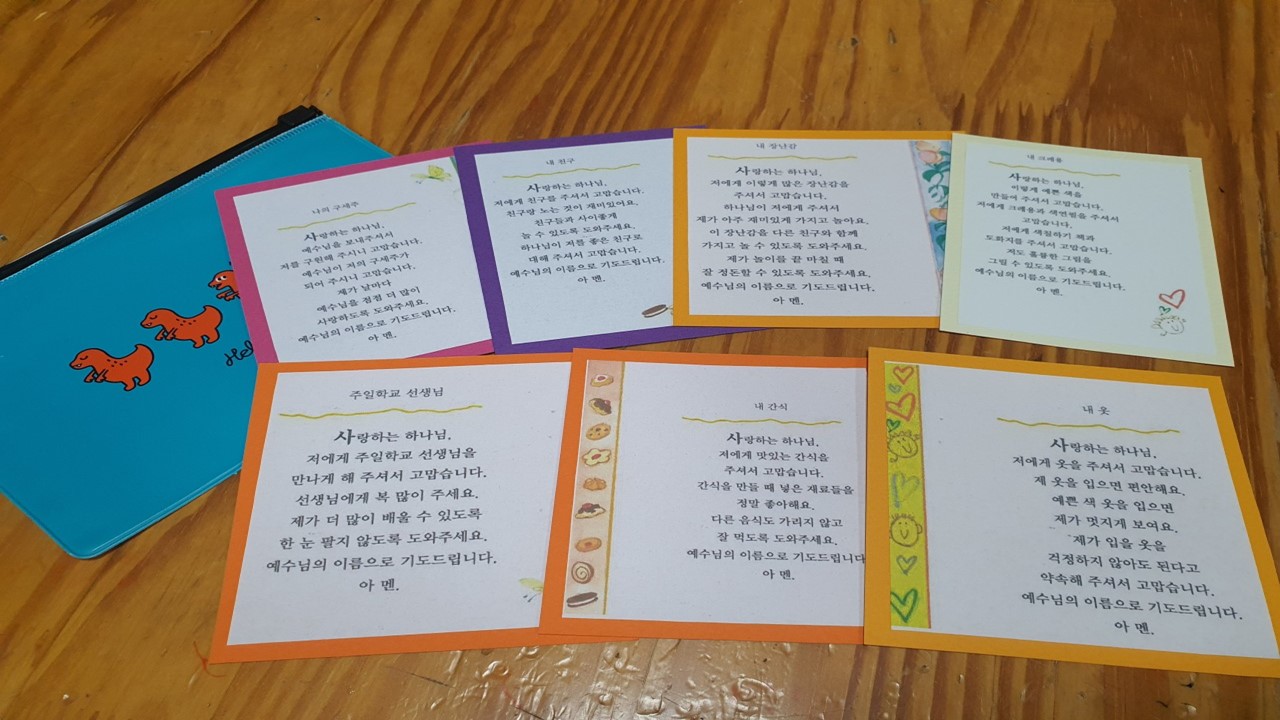 나의 구세주
사랑하는 하나님,
예수님을 보내주셔서
저를 구원해 주시니 고맙습니다.
예수님이 저의 구세주가
되어 주시니 고맙습니다.
제가 날마다
예수님을 점점 더 많이
사랑하도록 도와주세요.
예수님의 이름으로 기도드립니다.
아 멘.
내 친구
사랑하는 하나님,
저에게 친구를 주셔서 고맙습니다.
친구랑 노는 것이 재미있어요.
친구들과 사이좋게
놀 수 있도록 도와주세요.
하나님이 저를 좋은 친구로
대해 주셔서 고맙습니다.
예수님의 이름으로 기도드립니다.
아 멘.
내 장난감
사랑하는 하나님,
저에게 이렇게 많은 장난감을
주셔서 고맙습니다.
하나님이 저에게 주셔서
제가 아주 재미있게 가지고 놀아요.
이 장난감을 다른 친구와 함께
가지고 놀 수 있도록 도와주세요.
제가 놀이를 끝 마칠 때
잘 정돈할 수 있도록 도와주세요.
예수님의 이름으로 기도드립니다.
아 멘.
내 크레용
사랑하는 하나님,
이렇게 예쁜 색을
만들어 주셔서 고맙습니다.
저에게 크레용과 색연필을 주셔서
고맙습니다.
저에게 색칠하기 책과
도화지를 주셔서 고맙습니다.
저도 훌륭한 그림을
그릴 수 있도록 도와주세요.
예수님의 이름으로 기도드립니다.
아 멘.
주일학교 선생님
사랑하는 하나님,
저에게 주일학교 선생님을
만나게 해 주셔서 고맙습니다.
선생님에게 복 많이 주세요.
제가 더 많이 배울 수 있도록
한 눈 팔지 않도록 도와주세요.
예수님의 이름으로 기도드립니다.
아 멘.
내 간식
사랑하는 하나님,
저에게 맛있는 간식을
주셔서 고맙습니다.
간식을 만들 때 넣은 재료들을
정말 좋아해요.
다른 음식도 가리지 않고
잘 먹도록 도와주세요.
예수님의 이름으로 기도드립니다
아 멘.
내 옷
사랑하는 하나님,
저에게 옷을 주셔서 고맙습니다.
제 옷을 입으면 편안해요.
예쁜 색 옷을 입으면
제가 멋지게 보여요.
제가 입을 옷을
걱정하지 않아도 된다고
약속해 주셔서 고맙습니다.
예수님의 이름으로 기도드립니다.
아 멘.